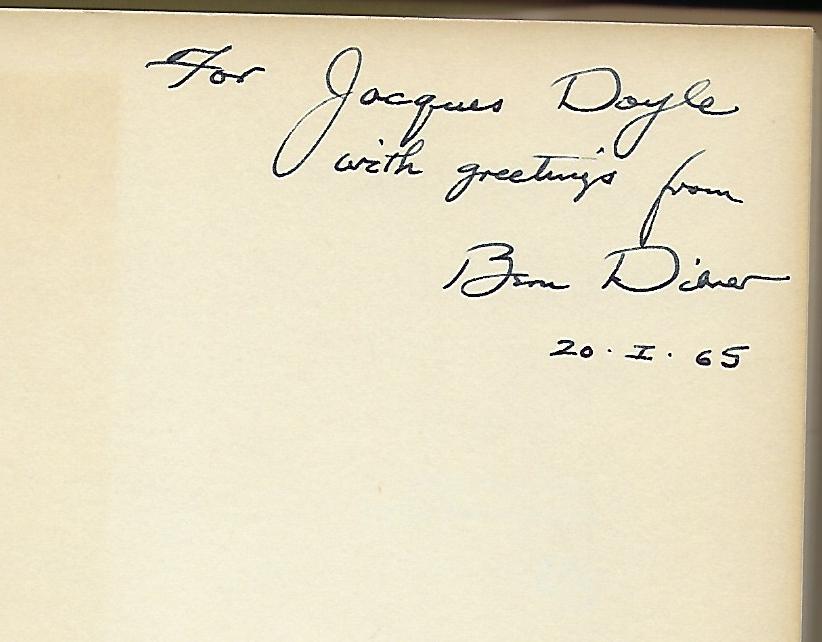 For Jacques Doyle
with greetings from
Ben
20 · I · 65